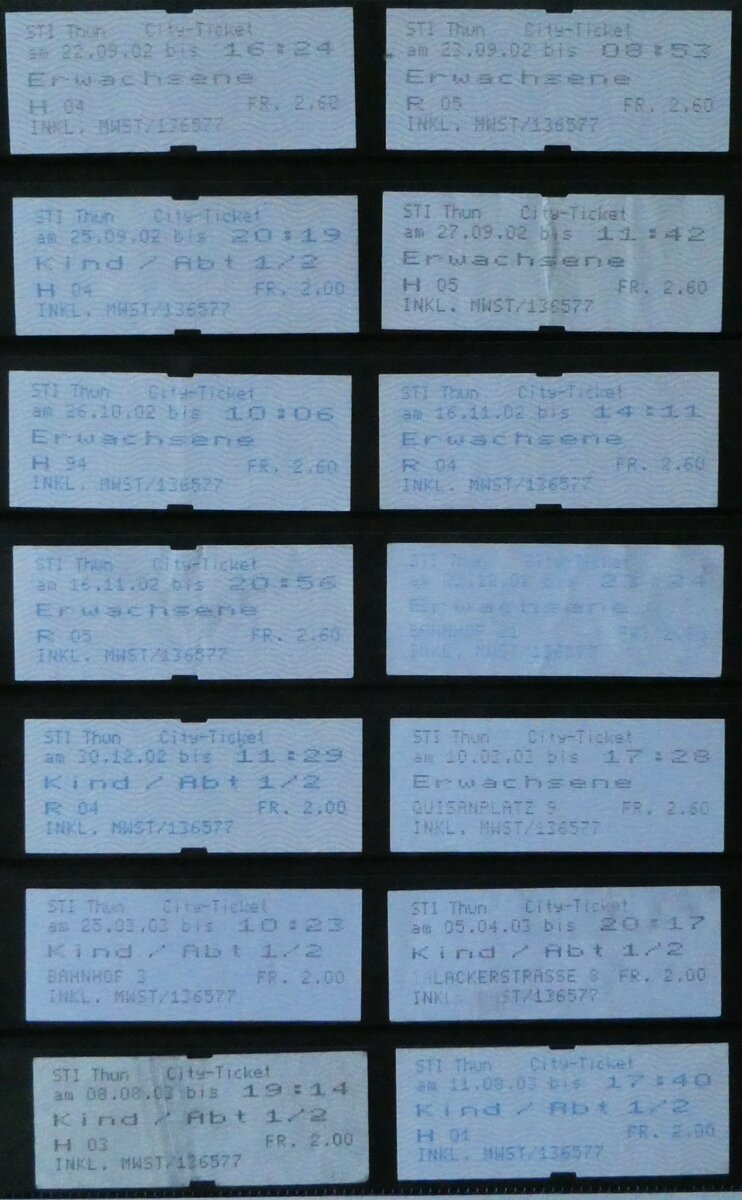 STI Thun City-Ticket
am 22.09.02 bis 16:24
Erwachsene
H 04 FR. 2.60
INKL. MWST/136577
STI Thun City-Ticket
am 23.09.02 bis 08:53
Erwachsene
R 05 FR. 2.60
INKL. MWST/136577
STI Thun City-Ticket
am 25.09.02 bis 20:19
Kind / Abt 1/2
H 04 FR. 2.00
INKL. MWST/136577
STI Thun City-Ticket
am 27.09.02 bis 11:42
Erwachsene
H 05 FR. 2.60
INKL. MWST/136577
STI Thun City-Ticket
am 26.10.02 bis 10:06
Erwachsene
H 94 FR. 2.60
INKL. MWST/136577
STI Thun City-Ticket
am 16.11.02 bis 14:11
Erwachsene
R 04 FR. 2.60
INKL. MWST/136577
STI Thun City-Ticket
am 16.11.02 bis 20:56
Erwachsene
R 05 FR. 2.60
INKL. MWST/136577
STI Thun City-Ticket
am bis
Erwachsene
BAHNHOF FR. 2.60
INKL. MWST/136577
STI Thun City-Ticket
am 30.12.02 bis 11:29
Kind / Abt 1/2
R 04 FR. 2.00
INKL. MWST/136577
STI Thun City-Ticket
am 10.03.03 bis 17:28
Erwachsene
GUISANPLATZ 9 FR. 2.60
INKL. MWST/136577
STI Thun City-Ticket
am 25.03.03 bis 10:23
Kind / Abt 1/2
BAHNHOF 3 FR. 2.00
INKL. MWST/136577
STI Thun City-Ticket
am 05.04.03 bis 20:17
Kind / Abt 1/2
LACKERSTRASSE 8 FR. 2.00
INKL MWST/136577
STI Thun City-Ticket
am 08.08.03 bis 19:14
Kind / Abt 1/2
H 03 FR. 2.00
INKL. MWST/136577
STI Thun City-Ticket
am 11.08.03 bis 17:40
Kind / Abt 1/2
H 01 FR. 2.00
INKL. MWST/136577